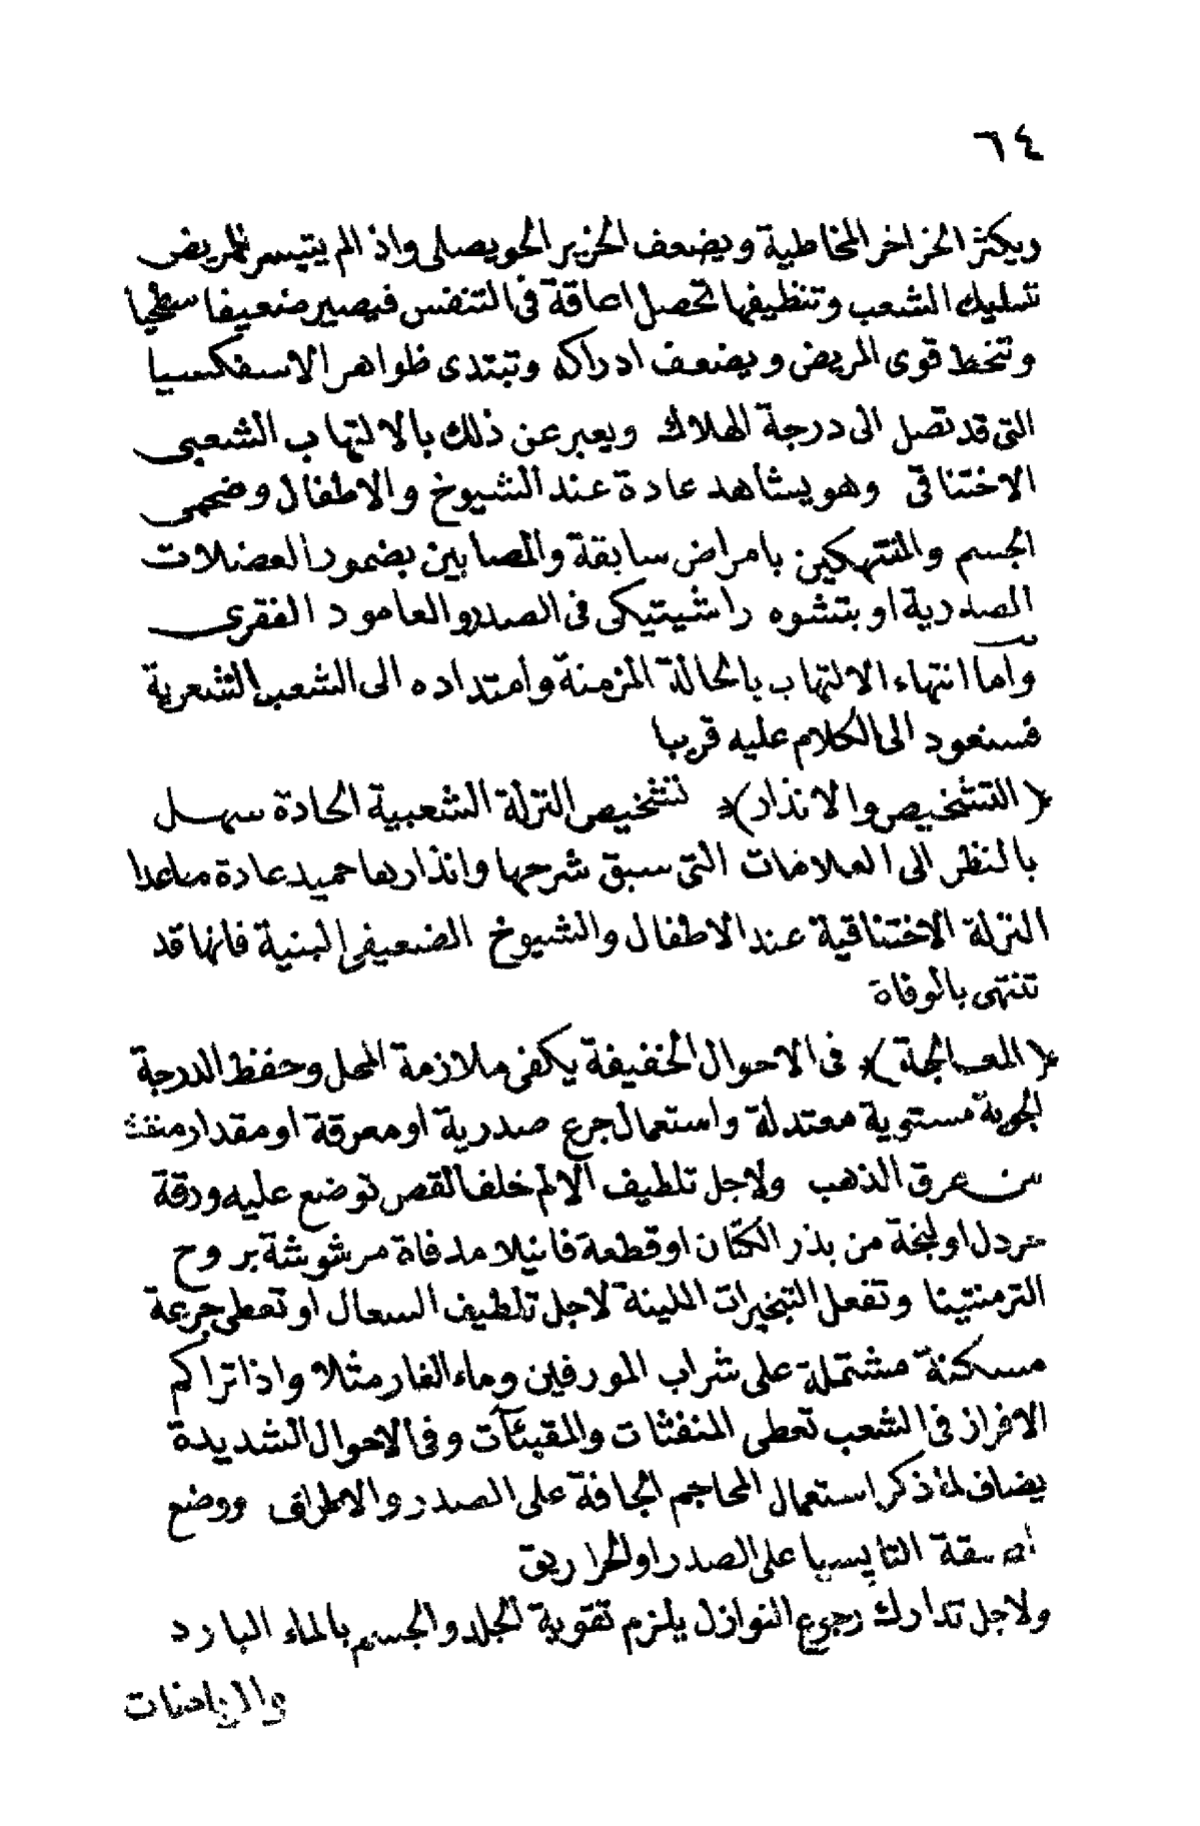 ٦٤
ويكثر الخراخر المخاطية ويضعف الخرير الحويصلى واذا لم يتيسر للمريض
تسليك الشعب وتنظيفها تحصل اعاقة فى التنفس فيصير ضعيفا سطحيا
وتنحط قوى المريض ويضعف ادراكه وتبتدى ظواهر الاسفكسيا
التى قد تصل الى درجة الهلاك ويعبر عن ذلك بالالتهاب الشعبى
الاختناقى وهو يشاهد عادة عند الشيوخ والاطفال وضخمى
الجسم والمنتهكين بامراض سابقة والمصابين بضمور العضلات
الصدرية او بتشوه راشيتيكى فى الصدر والعامود الفقرى
واما انتهاء الالتهاب بالحالة المزمنة وامتداده الى الشعب الشعرية
فسنعود الى الكلام عليه قريبا
﴿التشخيص والانذار﴾ تشخيص النزلة الشعبية الحادة سهل
بالنظر الى العلامات التى سبق شرحها وانذارها حميد عادة ماعدا
النزلة الاختناقية عند الاطفال والشيوخ الضعيفى البنية فانها قد
تنتهى بالوفاة
﴿المعالجة﴾ فى الاحوال الخفيفة يكفى ملازمة المحل وحفظ الدرجة
الجوية مستوية معتدلة واستعمال جرع صدرية او معرقة او مقدار منفث
من عرق الذهب ولاجل تلطيف الالم خلف القص توضع عليه ورقة
خردل او لبخة من بذر الكتان او قطعة فانيلا مدفاة مرشوشة بروح
الترمنتينا وتفعل التبخيرات اللينة لاجل تلطيف السعال او تعطى جريعة
مسكنة مشتملة على شراب المورفين وماء الغار مثلا واذا تراكم
الافراز فى الشعب تعطى المنفثات والمقيئآت وفى الاحوال الشديدة
يضاف لما ذكر استعمال المحاجم الجافة على الصدر والاطراف ووضع
لصقة التابسيا على الصدر او الحراريق
ولاجل تدارك رجوع النوازل يلزم تقوية الجلد والجسم بالماء البارد
والرياضات